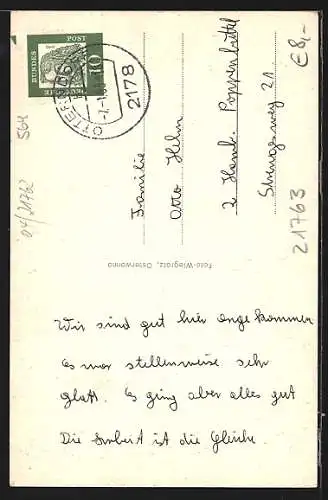 Wir sind gut hier angekommen
Es war stellenweise sehr
glatt. Es ging aber alles gut
Die Arbeit ist die Gleiche.
Familie
Otto Helm
2 Hamb. Poppenbüttel
Strengenweg 21
Foto-Wiegratz, Osterwanna
DEUTSCHE
BUNDES
POST
10
2178
€8,-
21763
564
04/21762